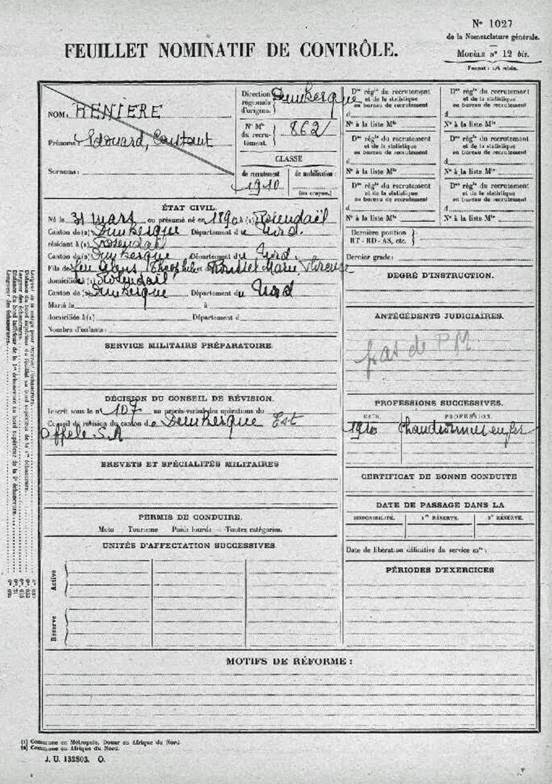 N° 1027
de la Nomenclature générale.
MODÈLE N° 12 bis.
FEUILLET NOMINATIF DE CONTRÔLE.
NOM: HENIERE
Prénoms: Edouard, Constant
Surnoms:
Direction régionale d'origine. Dunkerque
N° M^le du recrutement. 862
CLASSE
de recrutement de mobilisation
1910
(au crayon.)
D^on rég^le du recrutement et de la statistique ou bureau de recrutement
d
N° à la liste M^le
D^on rég^le du recrutement et de la statistique ou bureau de recrutement
d
N° à la liste M^le
D^on rég^le du recrutement et de la statistique ou bureau de recrutement
d
N° à la liste M^le
D^on rég^le du recrutement et de la statistique ou bureau de recrutement
d
N° à la liste M^le
D^on rég^le du recrutement et de la statistique ou bureau de recrutement
d
N° à la liste M^le
D^on rég^le du recrutement et de la statistique ou bureau de recrutement
d
N° à la liste M^le
Dernière position RT - RD - AS, etc.
Dernier grade:
ÉTAT CIVIL.
Né le 31 mars ou présumé né en 1890 à Rosendaël
Canton de Dunkerque Département d Nord.
résidant à Rosendaël
Canton de Dunkerque Département d Nord.
Fils de feu et de Marie
domicilié à Rosendaël
Canton de Dunkerque Département d Nord
Marié à
domicilié à Département d
Nombre d'enfants:
SERVICE MILITAIRE PRÉPARATOIRE.
DÉCISION DU CONSEIL DE RÉVISION.
Inscrit sous le n° 107 au procès-verbal des opérations du
Conseil de révision du canton de Dunkerque Est
Appelé S.A
BREVETS ET SPÉCIALITÉS MILITAIRES
PERMIS DE CONDUIRE.
Moto Tourisme Poids lourds — Toutes catégories.
UNITÉS D'AFFECTATION SUCCESSIVES.
Active
Réserve
DEGRÉ D'INSTRUCTION.
ANTÉCÉDENTS JUDICIAIRES.
pas de PM
PROFESSIONS SUCCESSIVES.
DATE. PROFESSION.
1910 Chaudronnier en fer
CERTIFICAT DE BONNE CONDUITE
DATE DE PASSAGE DANS LA
DISPONIBILITÉ. 1^re RÉSERVE. 2^e RÉSERVE.
Date de libération définitive du service m^re:
PÉRIODES D'EXERCICES
MOTIFS DE RÉFORME:
(1) Commune en Métropole, Douar en Afrique du Nord.
(2) Commune en Afrique du Nord.
J. U. 132803. O.